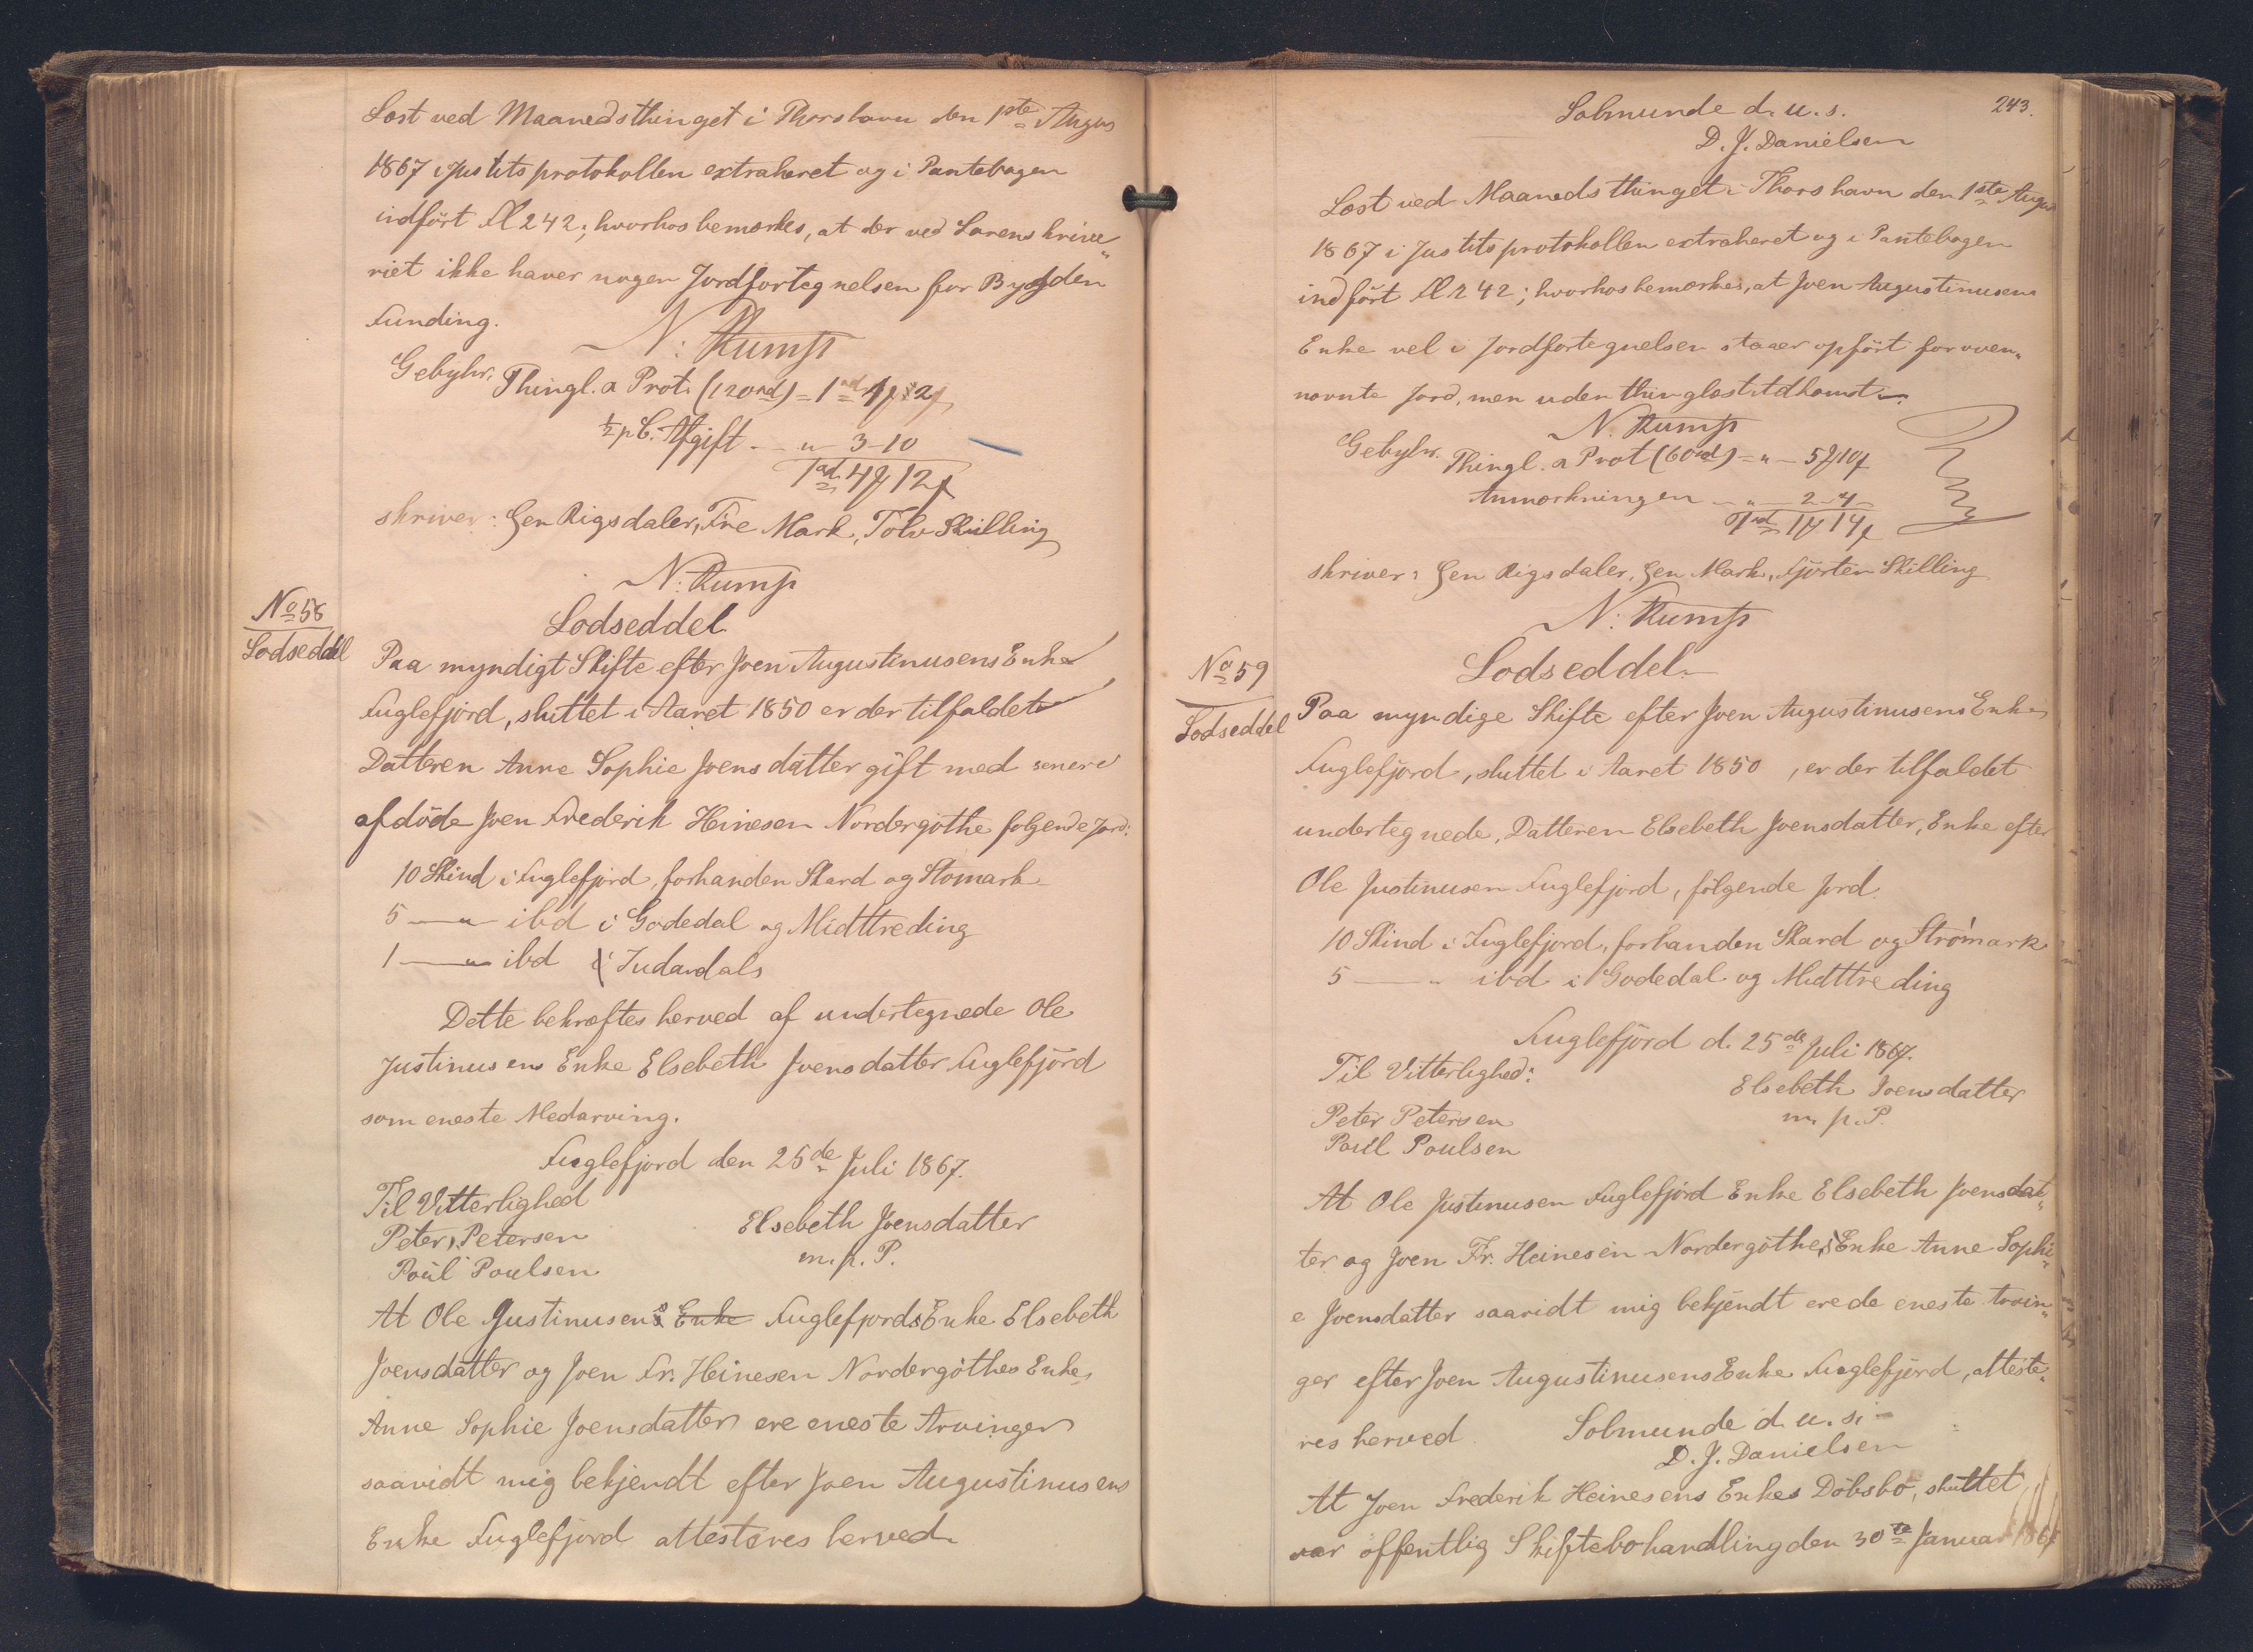 Læst ved Maanedsthinget i Thorshavn den 1ste Augus
1867 i Justitsprotokollen extraheret og i Pantebogen
indført Fl 242; hvorhos bemærkes, at der ved Sorenskrive"
riet ikke haves nogen Jordfortegnelsen for Bygden
Funding.
N: Rump
Gebyhr: Thingl. a Prot. (120rd) = 1rd
½ pC. Afgift — " — 3 — 10
1rd 4 12
skriver: Een Rigsdaler, Fire Mark, Tolv Skilling
N: Rump
No 58
Lodseddel
Lodseddel
Paa myndigt Skifte efter Joen Augustinusens Enke
Fuglefjord, sluttet i Aaret 1850 er der tilfaldet
Datteren Anne Sophie Joensdatter gift med senere
afdöde Joen Frederik Heinesen Nordergöthe følgende Jord:
10 Skind i Fuglefjord, forhanden Skard og Stomark
5 — " — ibd i Godedal og Midttreding
1 — " — ibd i Judardals
Dette bekræftes herved af undertegnede Ole
Justinusens Enke Elsebeth Joensdatter Fuglefjörd
som eneste Medarving.
Fuglefjord den 25de Juli 1867.
Til Vitterlighed
Peter Petersen
Poul Poulsen
Elsebeth Joensdatter
m. p. P.
At Ole Justinusens Enke Fuglefjords Enke Elsebeth
Joensdatter og Joen Fr. Heinesen Nordergöthes Enke,
Anne Sophie Joensdatter ere eneste Arvinger
saavidt mig bekjendt efter Joen Augustinusens
Enke Fuglefjord attesteres herved
243.
Solmunde d. u. s.
D. J. Danielsen
Læst ved Maanedsthinget i Thorshavn den 1ste Augus
1867 i Justitsprotokollen extraheret og i Pantebogen
indfört Fl 242; hvorhos bemærkes, at Joen Augustinusens
Enke vel i Jordfortegnelsen staaer opfört for oven„
nævnte Jord, men uden thinglæst Adkomst.
N. Rump
Gebyhr. Thingl. a Prot (60rd) = " — 5 10
Anmærkningen — " — 2 — 4
1rd 1 14
skriver: Een Rigsdaler, Een Mark, Fjorten Skilling
N: Rump
No 59
Lodseddel
Lodseddel
Paa myndige Skifte efter Joen Augustinusens Enke
Fuglefjord, sluttet i Aaret 1850, er der tilfaldet
undertegnede, Datteren Elsebeth Joensdatter, Enke efter
Ole Justinusen Fuglefjord, fölgende Jord
10 Skind i Fuglefjord, forhanden Skard og Strömark
5 — " ibd i Godedal og Midttreding
Fuglefjörd d. 25de Juli 1867.
Til Vitterlighed:
Elsebeth Joensdatter
m. p. P.
Peter Petersen
Poul Poulsen
At Ole Justinusen Fuglefjörd Enke Elsebeth Joensdat„
ter og Joen Fr. Heinesen Nordergöthes Enke Anne Sophi„
e Joensdatter saavidt mig bekjendt ere de eneste Arvin„
ger efter Joen Augustinusens Enke Fuglefjord, atteste„
res herved
Solmunde d. u. s.
D. J. Danielsen
At Joen Frederik Heinesens Enkes Döbsbo, sluttet
var offentlig Skiftebehandling den 30te Januar